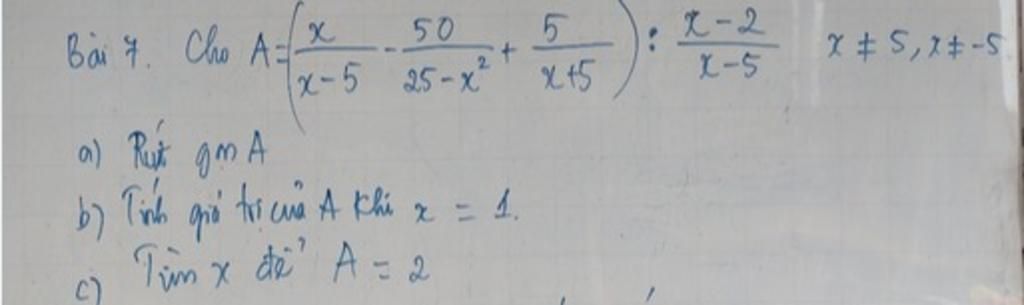 Bài 7. Cho A=(x/(x-5) - 50/(25-x²) + 5/(x+5)) : (x-2)/(x-5) x ≠ 5, x ≠ -5
a) Rút gọn A
b) Tính giá trị của A khi x = 1.
c) Tìm x để A = 2